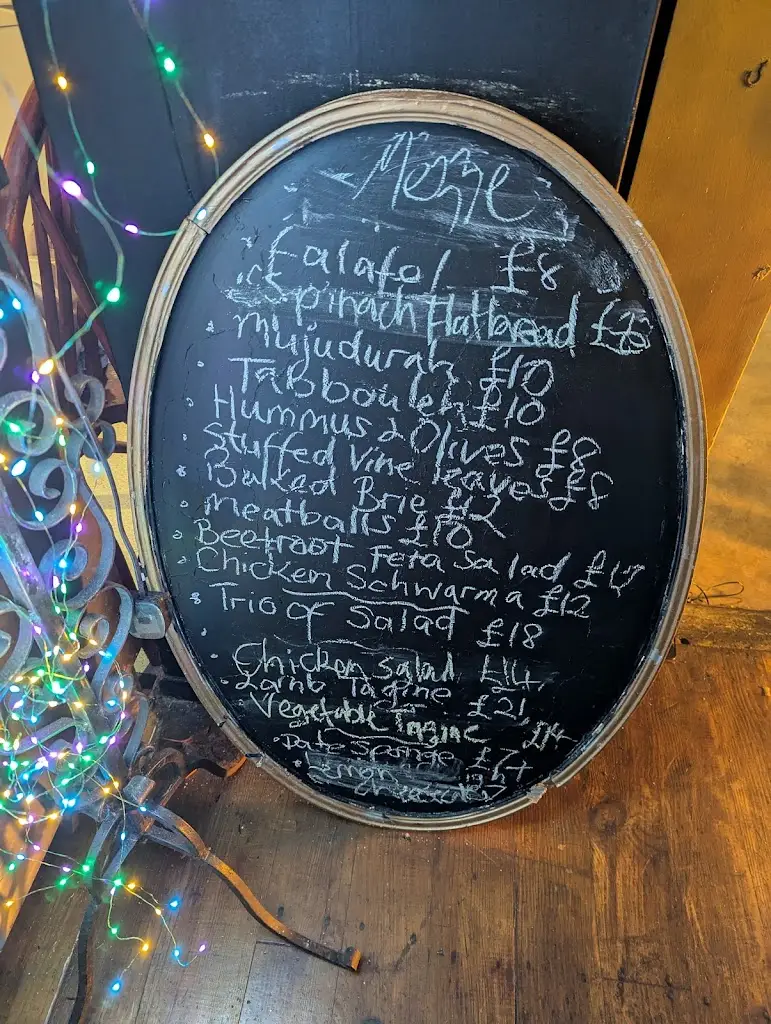 Mezze
Falafel £8
Spinach flatbread
Mujudurah £10
Tabbouleh £10
Hummus & Olives £8
Stuffed Vine leaves £8
Baked Brie £12
Meatballs £10
Beetroot Feta Salad
Chicken Schwarma £12
Trio of Salad £18
Chicken Salad £14
Lamb Tagine £21
Vegetable Tagine £14
Date Sponge £7
Lemon